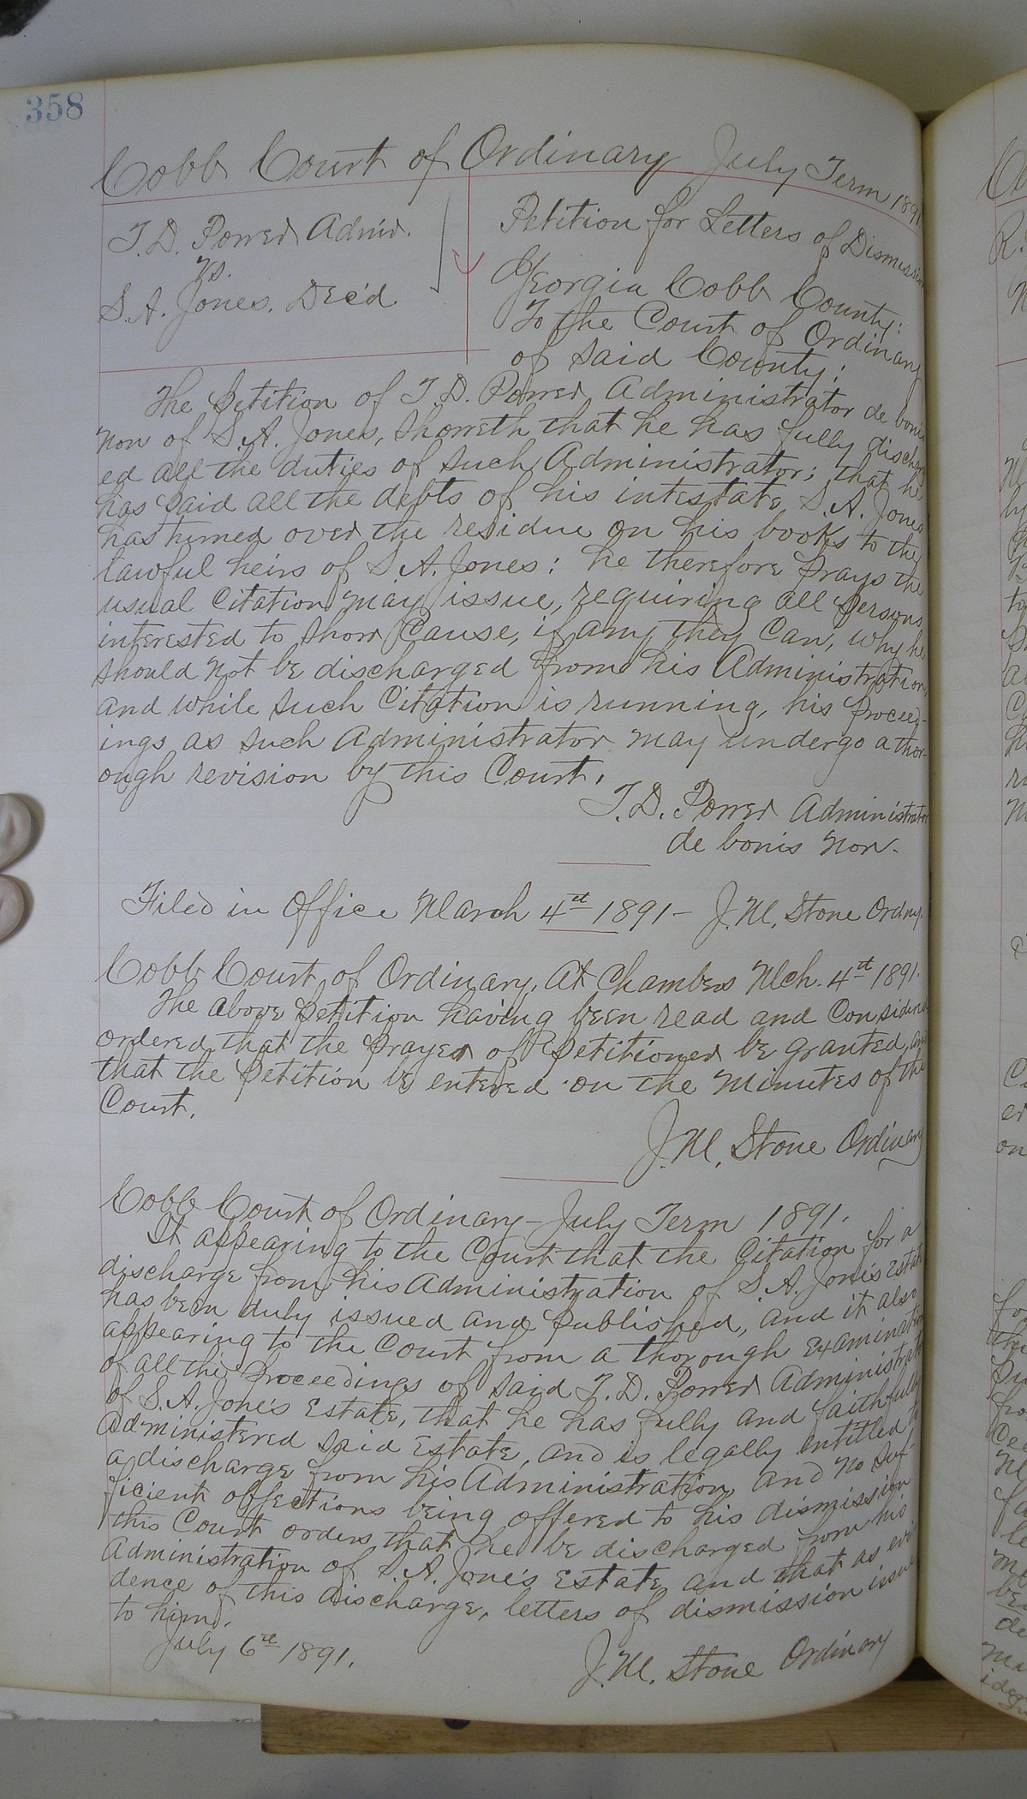 358
Cobb Court of Ordinary July Term 1891
T. D. Power Admr.
vs.
S. A. Jones, Dec'd
Petition for Letters of Dismission
Georgia Cobb County:
To the Court of Ordinary
of said County:
The Petition of T. D. Power Administrator de bonis
non of S. A. Jones, Showeth that he has fully discharg
ed all the duties of such Administrator; that he
has paid all the debts of his intestate, S. A. Jones
has turned over the residue on his books to the
lawful heirs of S. A. Jones: he therefore prays the
usual Citation may issue, requiring all persons
interested to show Cause, if any they Can, why he
should not be discharged from his Administration,
and while such Citation is running, his proceed-
ings as such Administrator may undergo a thor-
ough revision by this Court.
T. D. Power Administrator
de bonis non.
Filed in Office March 4th 1891 - J. M. Stone Ordny.
Cobb Court of Ordinary, At Chambers Mch. 4th 1891.
The above petition having been read and Considered
ordered that the prayer of Petitioner be granted, and
that the petition be entered on the Minutes of the
Court.
J. M. Stone Ordinary
Cobb Court of Ordinary - July Term 1891.
It appearing to the Court that the Citation for a
discharge from his Administration of S. A. Jones Estate
has been duly issued and published, and it also
appearing to the Court from a thorough Examination
of all the proceedings of said T. D. Power Administrator
of S. A. Jone's Estate, that he has fully and faithfully
Administered said Estate, and is legally entitled to
a discharge from his Administration, and no suf-
ficient objections being offered to his dismission
this Court orders that he be discharged from his
Administration of S. A. Jone's Estate, and that as evi
dence of this discharge, letters of dismission issue
to him.
July 6th 1891.
J. M. Stone Ordinary